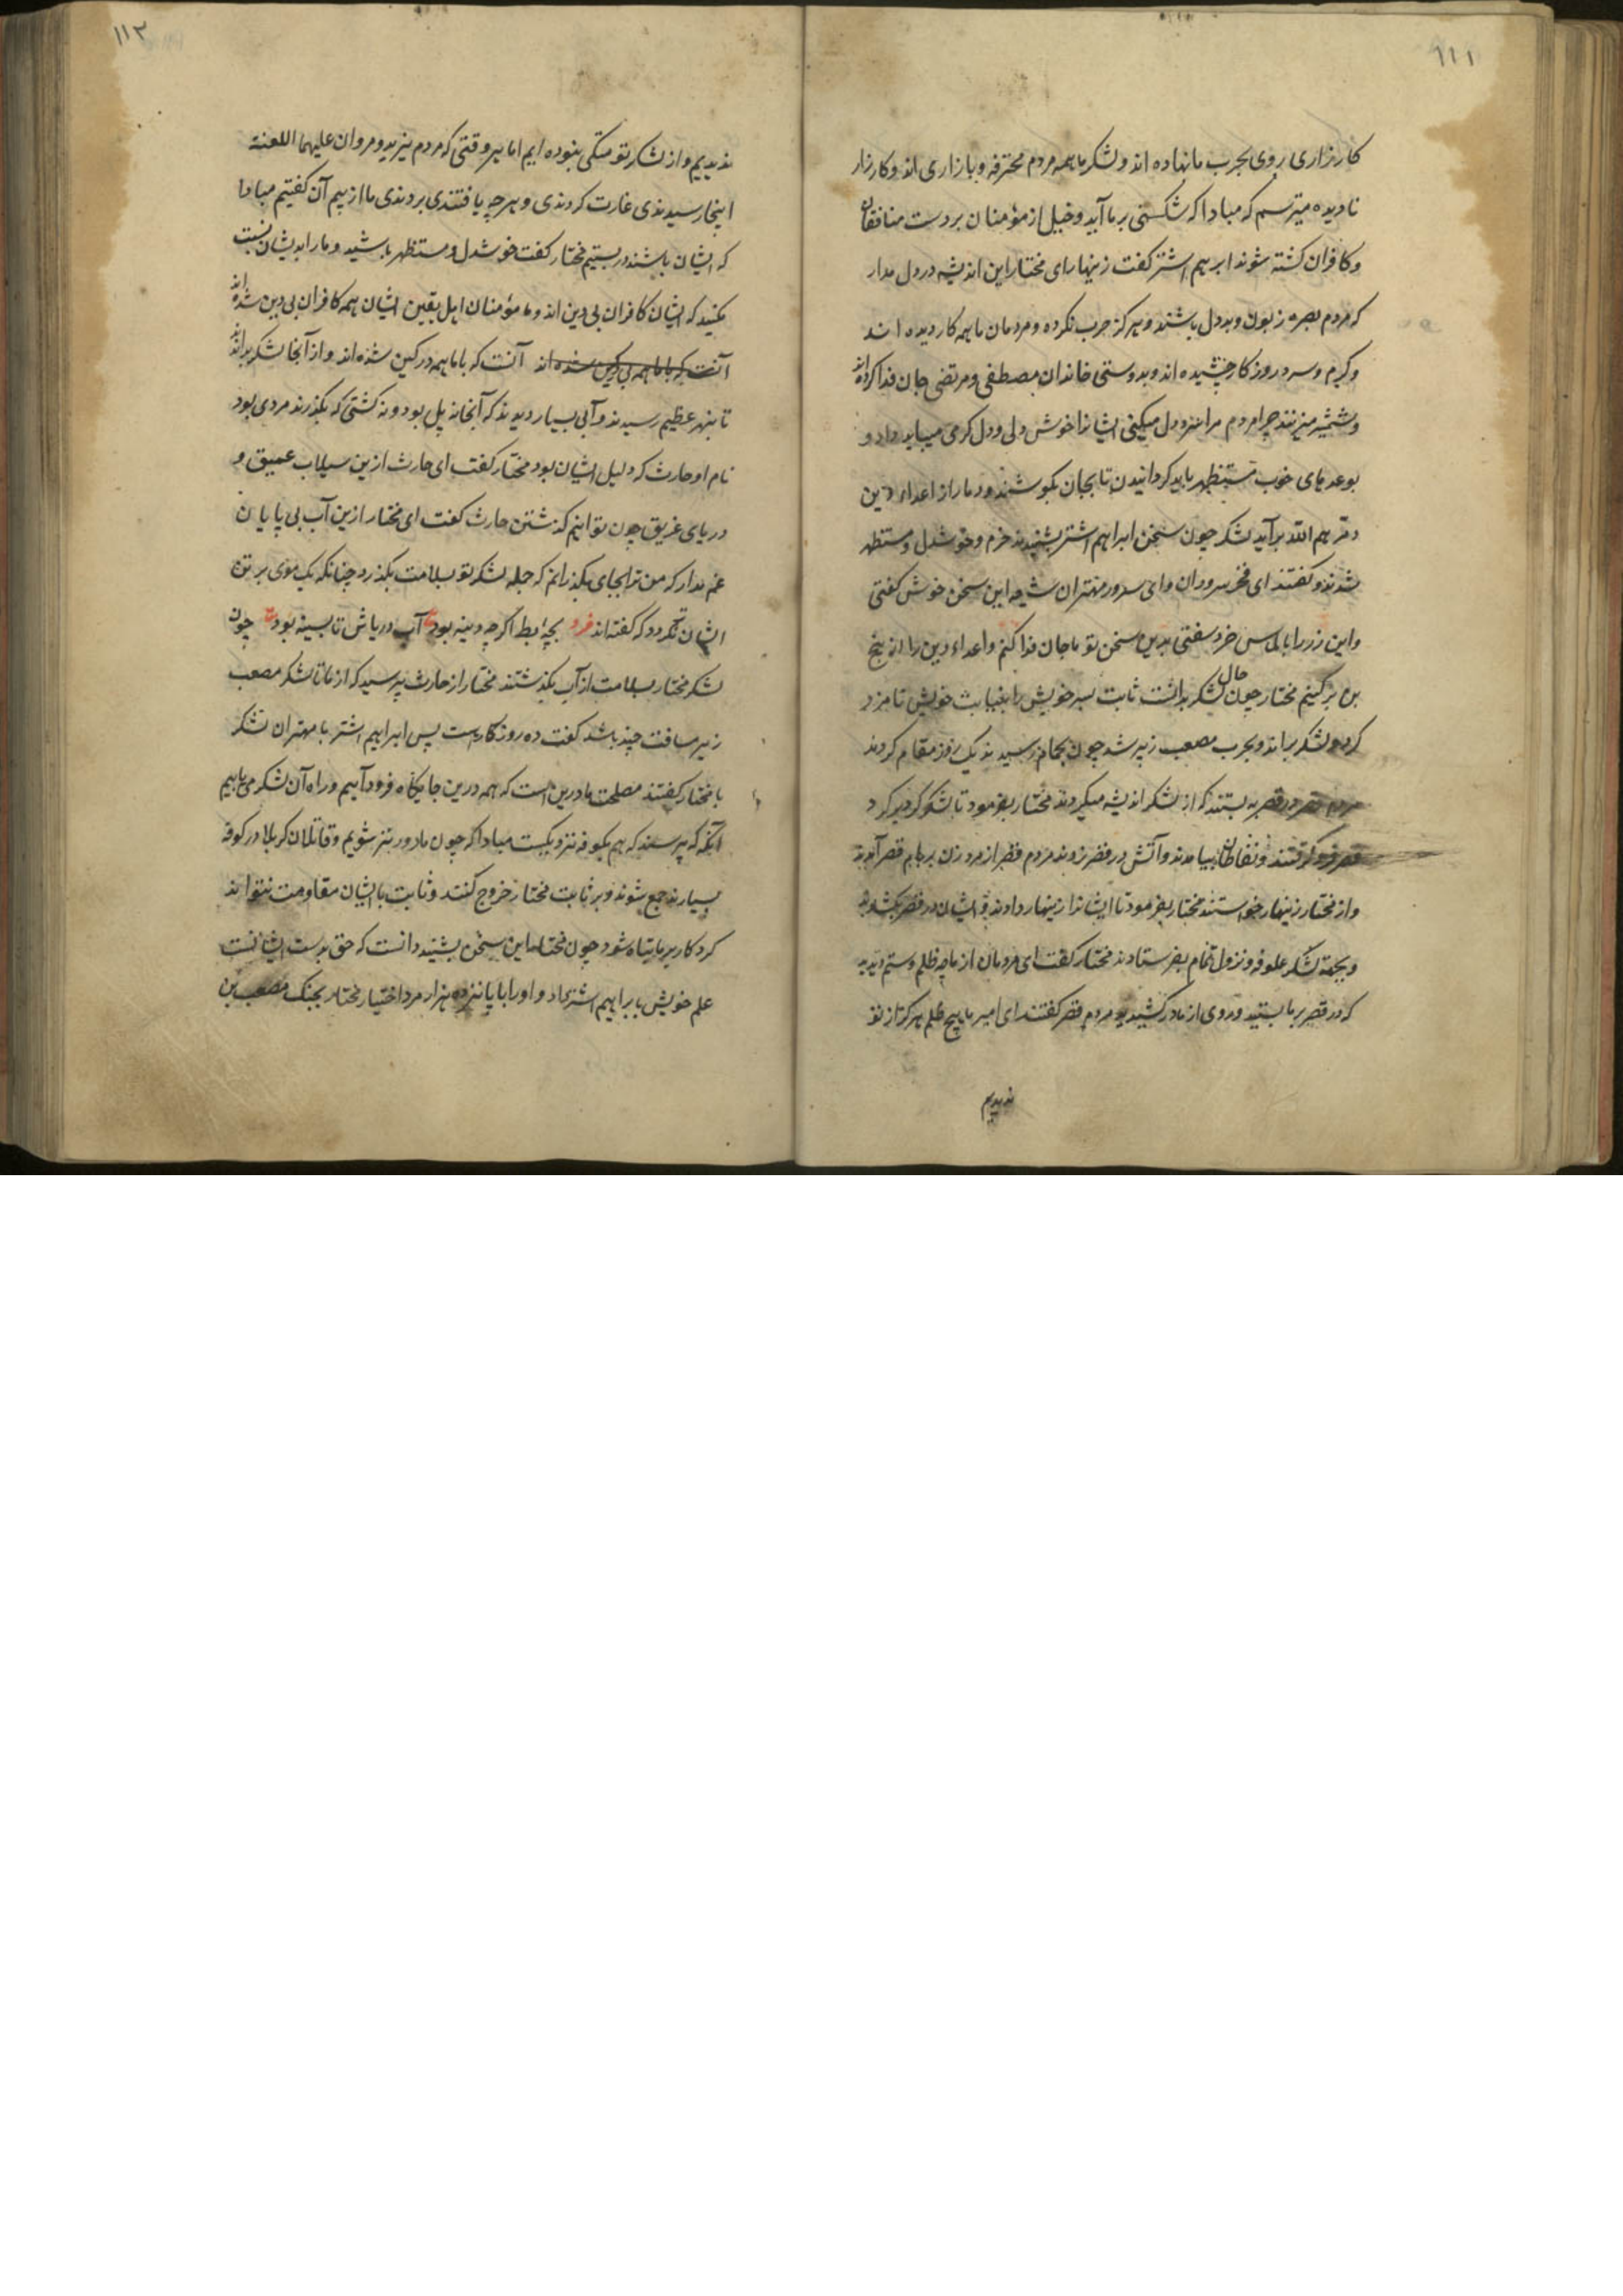 ۱۱۱
کارزاری روی بحرب ما نهاده اند و لشکر ما همه مردم محترفه و بازاری اند و کارزار
نادیده میترسم که مبادا که شکستی بر ما آید و خیل از مؤمنان بر دست منافقان
و کافران کشته شوند ابرهیم اشتر کفت زینهار ای مختار این اندیشه در دل مدار
که مردم بصره زبون و بددل باشند و هرکز حرب نکرده و مردمان ما همه کار دیده اند
و کرم و سرد روزکار چشیده اند و بدوستی خاندان مصطفی و مرتضی جان فدا کرده اند
و شمشیر میزنند چرا مردم مرا بددل میکنی ایشانرا خوش دلی و دل کرمی میباید داد و
بوعدهای خوب مستظهر باید کردانیدن تا بجان بکوشند و دمار از اعداء دین
برآید لشکر چون سخن ابراهیم اشتر بشنیدند خرم و خوشدل و مستظهر
شدند و کفتند ای فخر سروران و ای سرور مهتران شیعه این سخن خوش کفتی
و این زر را بالماس خرد سفتی بدین سخن تو ما جان فدا کنیم و اعداء دین را از بیخ
بن برکنیم مختار چون حال لشکر بدانست ثابت پسر خویش را بنیابت خویش نامزد
کرد و لشکر براند و بحرب مصعب زبیر شد چون بحمام رسیدند یک روز مقام کردند
مردم قصر در قصر به بستند که از لشکر اندیشه میکردند مختار بفرمود تا لشکر کرد بر کرد
قصر فرو کرفتند و نفاطان بیامدند و آتش در قصر زدند مردم قصر از مرد و زن بر بام قصر آمدند
و از مختار زینهار خواستند مختار بفرمود تا ایشانرا زینهار دادند ایشان در قصر بکشودند
و بجهة لشکر علوفه و نزول تمام بفرستادند مختار کفت ای مردمان از ما چه ظلم و ستم دیدید
که در قصر بر ما بستید و روی از ما درکشیدید مردم قصر کفتند ای امیر ما هیچ ظلم هرکز از تو
ندیدیم
۱۱۲
ندیدیم و از لشکر تو مبتکی نبوده ایم اما هر وقتی که مردم یزید و مروان علیهما اللعنة
اینجا رسیدندی غارت کردندی و هر چه یافتندی بردندی ما از بیم آن کفتیم مبادا
که ایشان باشند در بستیم مختار کفت خوشدل و مستظهر باشید و ما را بدیشان نسبت
مکنید که ایشان کافران بی دین اند و ما مؤمنان اهل یقین ایشان همه کافران بی دین شده اند
آنست که با ما همه در کین شده اند و از آنجا لشکر براندند
تا بنهر عظیم رسیدند و آبی بسیار دیدند که آنجا نه پل بود و نه کشتی که بکذرند مردی بود
نام او حارث که دلیل ایشان بود مختار کفت ای حارث ازین سیلاب عمیق و
دریای غریق چون توانیم کذشتن حارث کفت ای مختار ازین آب بی پایان
غم مدار که من ترا بجای بکذرانم که جمله لشکر تو بسلامت بکذرد چنانکه یک موی بر تن
ایشان تر نکردد که کفته اند فرد بچهٔ بط اکر چه دینه بود آب دریاش تا بسینه بود چون
لشکر مختار بسلامت از آب بکذشتند مختار از حارث پرسید که از ما تا لشکر مصعب
زبیر مسافت چند باشد کفت ده روز کار است پس ابراهیم اشتر با مهتران لشکر
با مختار کفتند مصلحت ما درین است که همه درین جایکاه فرود آییم و راه آن لشکر می پاییم
آنکه که برسند که هم بکوفه نزدیکست مبادا که چون ما دورتر شویم و قاتلان کربلا در کوفه
بسیارند جمع شوند و بر ثابت مختار خروج کنند و ثابت با ایشان مقاومت نتواند
کرد کار بر ما تباه شود چون مختار این سخن بشنید دانست که حق بدست ایشانست
علم خویش بابراهیم اشتر داد و او را با پانزده هزار مرد اختیار مختار بجنک مصعب بن